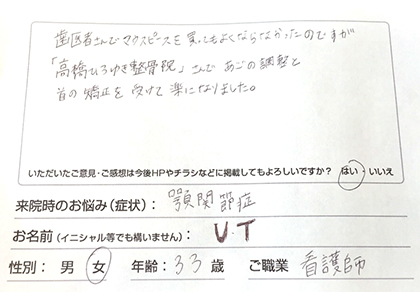 歯医者さんでマウスピースを買ってもよくならなかったのですが
「高橋ひろゆき整骨院」さんで あごの調整と
首の矯正を受けて楽になりました。
いただいたご意見・ご感想は今後HPやチラシなどに掲載してもよろしいですか? はい・いいえ
来院時のお悩み(症状): 顎関節症
お名前(イニシャル等でも構いません): U.T
性別: 男 女 年齢: 33 歳 ご職業 看護師